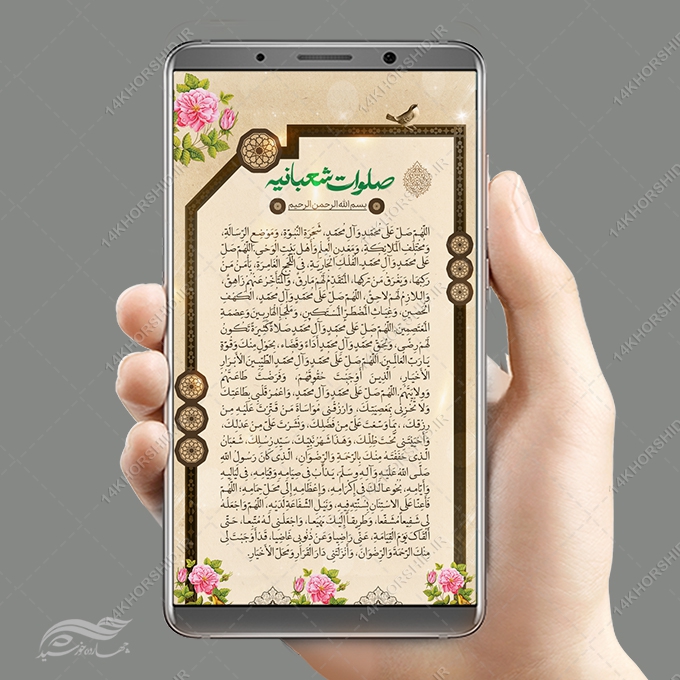 صلوات شعبانیه
بسم الله الرحمن الرحیم
اللَّهُمَّ صَلِّ عَلَى مُحَمَّدٍ وَآلِ مُحَمَّدٍ، شَجَرَةِ النُّبُوَّةِ، وَمَوْضِعِ الرِّسَالَةِ،
وَمُخْتَلَفِ الْمَلائِكَةِ، وَمَعْدِنِ الْعِلْمِ وَأَهْلِ بَيْتِ الْوَحْيِ. اللَّهُمَّ صَلِّ
عَلَى مُحَمَّدٍ وَآلِ مُحَمَّدٍ الْفُلْكِ الْجَارِيَةِ، فِي اللُّجَجِ الْغَامِرَةِ، يَأْمَنُ مَنْ
رَكِبَهَا، وَيَغْرَقُ مَنْ تَرَكَهَا، الْمُتَقَدِّمُ لَهُمْ مَارِقٌ، وَالْمُتَأَخِّرُ عَنْهُمْ زَاهِقٌ،
وَاللازِمُ لَهُمْ لاحِقٌ. اللَّهُمَّ صَلِّ عَلَى مُحَمَّدٍ وَآلِ مُحَمَّدٍ، الْكَهْفِ
الْحَصِينِ، وَغِيَاثِ الْمُضْطَرِّ الْمُسْتَكِينِ، وَمَلْجَإِ الْهَارِبِينَ وَعِصْمَةِ
الْمُعْتَصِمِينَ. اللَّهُمَّ صَلِّ عَلَى مُحَمَّدٍ وَآلِ مُحَمَّدٍ صَلاةً كَثِيرَةً تَكُونُ
لَهُمْ رِضًى، وَلِحَقِّ مُحَمَّدٍ وَآلِ مُحَمَّدٍ أَدَاءً وَقَضَاءً، بِحَوْلٍ مِنْكَ وَقُوَّةٍ
يَا رَبَّ الْعَالَمِينَ. اللَّهُمَّ صَلِّ عَلَى مُحَمَّدٍ وَآلِ مُحَمَّدٍ الطَّيِّبِينَ الأَبْرَارِ
الأَخْيَارِ، الَّذِينَ أَوْجَبْتَ حُقُوقَهُمْ، وَفَرَضْتَ طَاعَتَهُمْ
وَوِلايَتَهُمْ. اللَّهُمَّ صَلِّ عَلَى مُحَمَّدٍ وَآلِ مُحَمَّدٍ، وَاعْمُرْ قَلْبِي بِطَاعَتِكَ
وَلا تُخْزِنِي بِمَعْصِيَتِكَ، وَارْزُقْنِي مُوَاسَاةَ مَنْ قَتَّرْتَ عَلَيْهِ مِنْ
رِزْقِكَ، بِمَا وَسَّعْتَ عَلَيَّ مِنْ فَضْلِكَ، وَنَشَرْتَ عَلَيَّ مِنْ عَدْلِكَ،
وَأَحْيَيْتَنِي تَحْتَ ظِلِّكَ، وَهَذَا شَهْرُ نَبِيِّكَ، سَيِّدِ رُسُلِكَ، شَعْبَانُ
الَّذِي حَفَفْتَهُ مِنْكَ بِالرَّحْمَةِ وَالرِّضْوَانِ، الَّذِي كَانَ رَسُولُ اللهِ
صَلَّى اللهُ عَلَيْهِ وَآلِهِ وَسَلَّمَ، يَدْأَبُ فِي صِيَامِهِ وَقِيَامِهِ، فِي لَيَالِيهِ
وَأَيَّامِهِ، بُخُوعًا لَكَ فِي إِكْرَامِهِ، وَإِعْظَامِهِ إِلَى مَحَلِّ حِمَامِهِ؛ اللَّهُمَّ
فَأَعِنَّا عَلَى الاسْتِنَانِ بِسُنَّتِهِ فِيهِ، وَنَيْلِ الشَّفَاعَةِ لَدَيْهِ، اللَّهُمَّ وَاجْعَلْهُ
لِي شَفِيعًا مُشَفَّعًا، وَطَرِيقًا إِلَيْكَ مَهْيَعًا، وَاجْعَلْنِي لَهُ مُتَّبِعًا، حَتَّى
أَلْقَاكَ يَوْمَ الْقِيَامَةِ، عَنِّي رَاضِيًا وَعَنْ ذُنُوبِي غَاضِيًا، قَدْ أَوْجَبْتَ لِي
مِنْكَ الرَّحْمَةَ وَالرِّضْوَانَ، وَأَنْزَلْتَنِي دَارَ الْقَرَارِ وَمَحَلَّ الأَخْيَارِ.
14KHORSHID.IR
چهارده خورشید